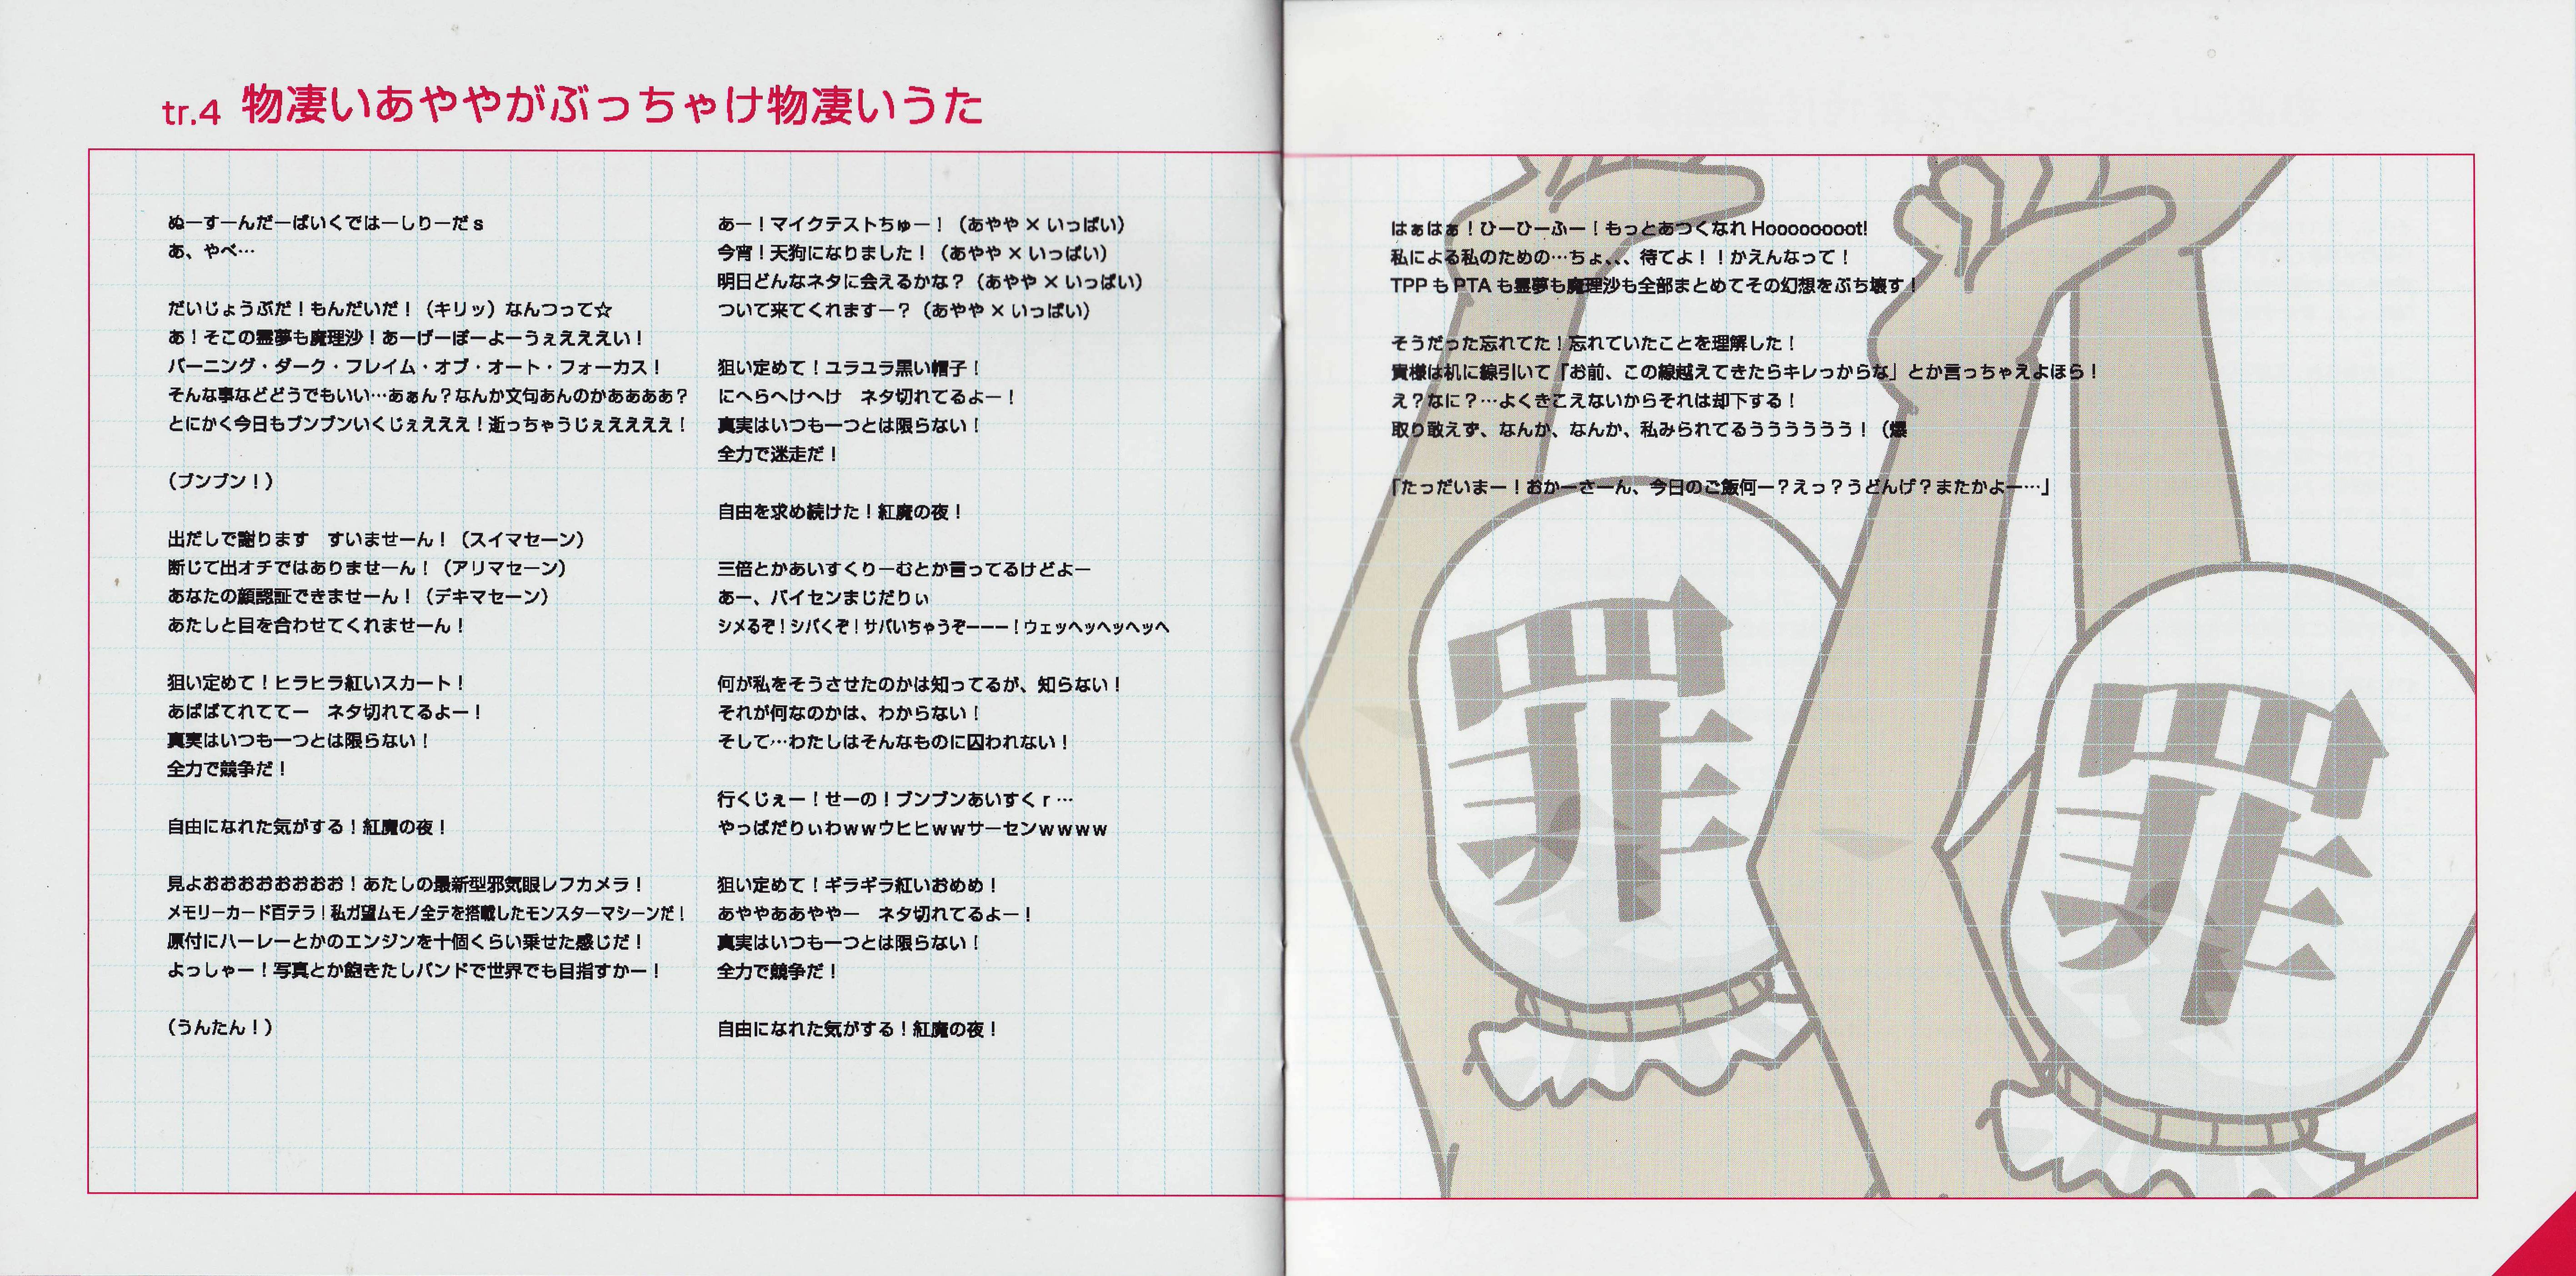 tr.4 物凄いあややがぶっちゃけ物凄いうた
ぬーすーんだーばいくではーしりーだs
あ、やべ…
だいじょうぶだ！もんだいだ！（キリッ）なんつって☆
あ！そこの霊夢も魔理沙！あーげーぽーよーうぇええええい！
バーニング・ダーク・フレイム・オブ・オート・フォーカス！
そんな事などどうでもいい…あぁん？なんか文句あんのかああああ？
とにかく今日もブンブンいくじぇえええ！逝っちゃうじぇええええ！
（ブンブン！）
出だしで謝ります　すいませーん！（スイマセーン）
断じて出オチではありませーん！（アリマセーン）
あなたの顔認証できませーん！（デキマセーン）
あたしと目を合わせてくれませーん！
狙い定めて！ヒラヒラ紅いスカート！
あばばてれててー　ネタ切れてるよー！
真実はいつも一つとは限らない！
全力で競争だ！
自由になれた気がする！紅魔の夜！
見よおおおおおおおお！あたしの最新型邪気眼レフカメラ！
メモリーカード百テラ！私ガ望ムモノ全テを搭載したモンスターマシーンだ！
原付にハーレーとかのエンジンを十個くらい乗せた感じだ！
よっしゃー！写真とか飽きたしバンドで世界でも目指すかー！
（うんたん！）
あー！マイクテストちゅー！（あやや×いっぱい）
今宵！天狗になりました！（あやや×いっぱい）
明日どんなネタに会えるかな？（あやや×いっぱい）
ついて来てくれますー？（あやや×いっぱい）
狙い定めて！ユラユラ黒い帽子！
にへらへけへけ　ネタ切れてるよー！
真実はいつも一つとは限らない！
全力で迷走だ！
自由を求め続けた！紅魔の夜！
三倍とかあいすくりーむとか言ってるけどよー
あー、パイセンまじだりぃ
シメるぞ！シバくぞ！サバいちゃうぞーーー！ウェッヘッヘッヘッヘ
何が私をそうさせたのかは知ってるが、知らない！
それが何なのかは、わからない！
そして…わたしはそんなものに囚われない！
行くじぇー！せーの！ブンブンあいすくｒ…
やっぱだりぃわｗｗウヒヒｗｗサーセンｗｗｗｗ
狙い定めて！ギラギラ紅いおめめ！
あややああややー　ネタ切れてるよー！
真実はいつも一つとは限らない！
全力で競争だ！
自由になれた気がする！紅魔の夜！
はぁはぁ！ひーひーふー！もっとあつくなれHooooooooot!
私による私のための…ちょ、、、待てよ！！かえんなって！
TPPもPTAも霊夢も魔理沙も全部まとめてその幻想をぶち壊す！
そうだった忘れてた！忘れていたことを理解した！
貴様は机に線引いて「お前、この線越えてきたらキレっからな」とか言っちゃえよほら！
え？なに？…よくきこえないからそれは却下する！
取り敢えず、なんか、なんか、私みられてるうううううう！（爆
「たっだいまー！おかーさーん、今日のご飯何ー？えっ？うどんげ？またかよー…」
罪
罪